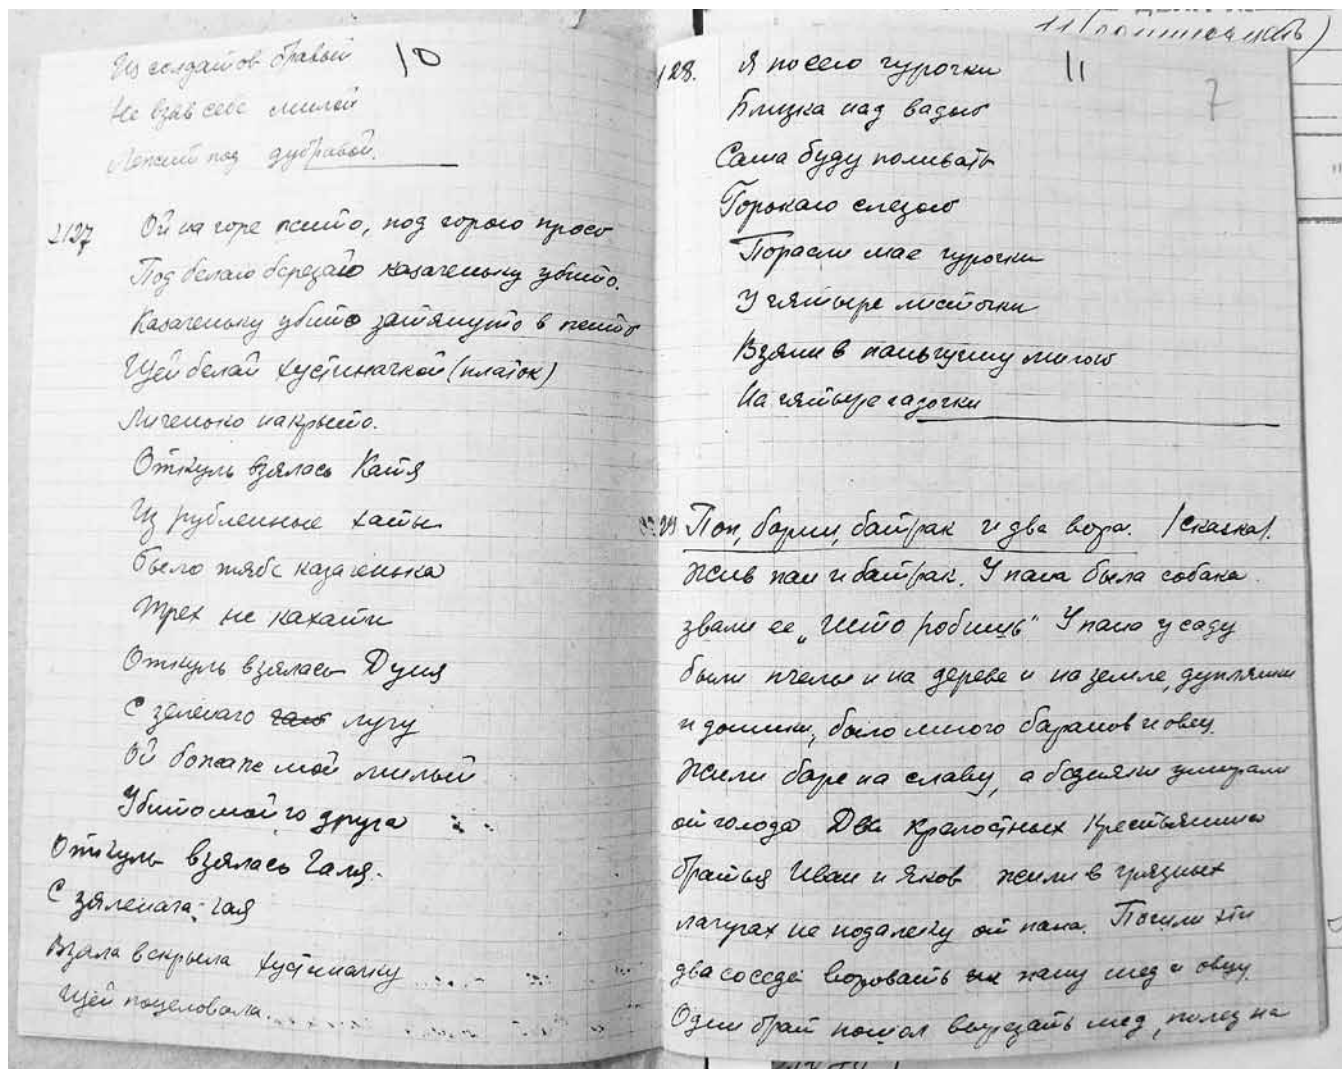 Из солдатов бравый
10
Не взяв себе милой
Лежит под дубравой.
2127 Ой на горе жито, под горою просо
Под белаю березаю казаченьку убито.
Казаченьку убито затянуто в жито
Щей белай хустиначкой (платок)
Личенько накрыто.
Откуль взялась Катя
Из рубленные хаты
Было тябе казаченька
Трех не кахати
Откуль взялась Дуня
С зеленаго лугу
Ой божа ж мой милый
Убито маго друга
Откуль взялась Галя.
С зяленага гая
Взяла вскрыла хустиначку
Щей поцеловала.
11(
128. Я посею гурочки
11
7
Близка над вадою
Сама буду поливать
Горькаю слезою
Порасли мае гурочки
У чятыре листочки
Взяли в
На чятыре гадочки
29 Поп, барин, батрак и два вора. /Сказка/.
Жив пан и батрак. У пана была собака
звали ее "што робишь" У пана у саду
были пчелы и на дереве и на земле, дуплянки
и домики, было много баранов и овец.
Жили баре на славу, а бедняки умирали
от голода Два крепостных Крестьянина
братья Иван и Яков жили в грязных
лачугах не подалеку от пана. Пошли эти
два соседа воровать пану мед и овцу.
Один брат пошол вырезать мед, полез на